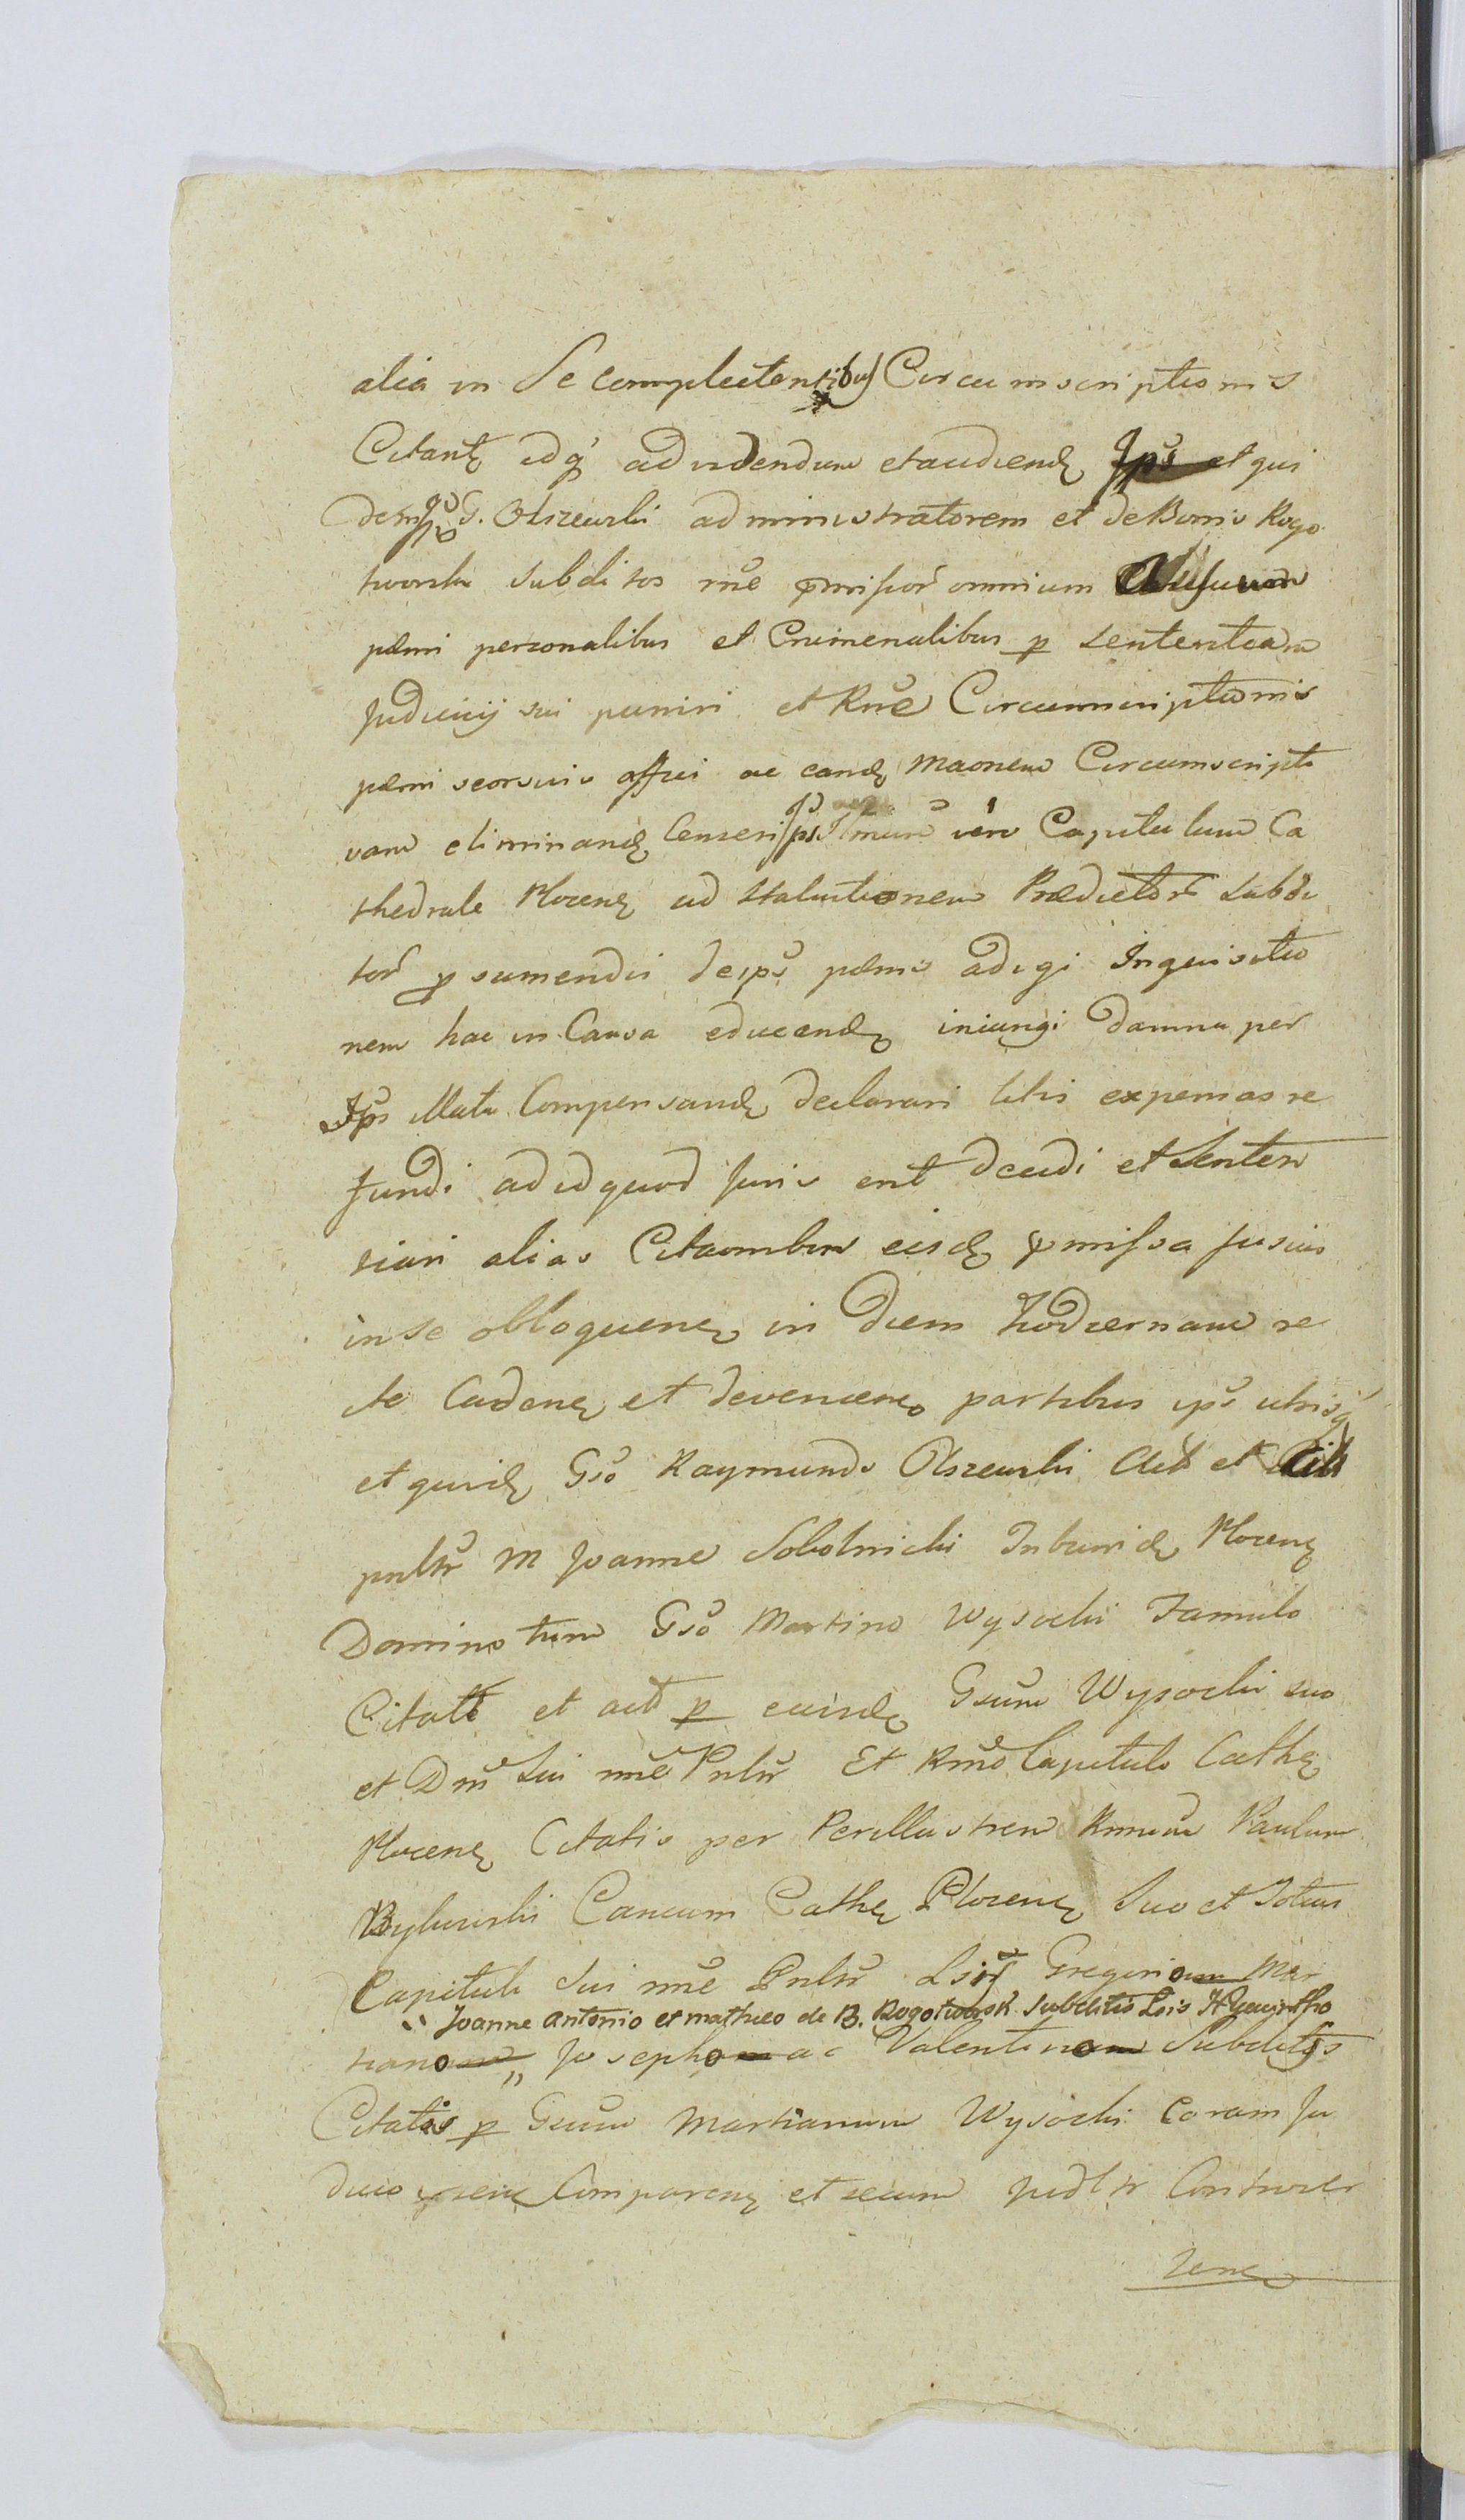 alia in se complectentibus Circumscriptionis
Citantę idq; ad videndum et audiendę Ips̃ et qui
dem G. Olszewski administratorem et de Bonis Rogo
tworsk subditos rñe p̃missor̃ omnium
pœni personalibus et Criminalibus p sententiam
Judicij sui puniri et Rñe Circumscriptionis
pœni seorsivis affici ac eandę maonem Circumscripti
vam eliminandę Censeri vero Capitulum Ca
thedrale Plocenę ad statuitionem Prædictor̃ subdi
tor̃ p sumendis de ips̃ pœnis adigi Inquisitio
nem hac in Causa educendę iniungi damna per
Ips̃ illata Compensandę declarari litis expensas re
fundi ad id quod Juris erit dcudi et senten
tiari alias Citaombus eisdę p̃missa fusius
in se obloquenę in diem hodiernam re
cte Cadenę et devenienę partibus ips̃ utrisq;
et quidę Gso Raymundo Olszewski Act et Citt
pnltr̃ M Joanne Sobolnicki Plocenę
Domino tum Gso Martino Wysocki Famulo
Citato et act p eundę Gsum Wysocki suo
et Dni Sui nñe Pnltr̃ Et Rm̃o Capitulo Cathę
Plocenę Citatis per Perillustrem Rmum Paulum
Cancum Cathę Plocenę Suo et Totius
Capituli Sui nñe Pnltr̃ Gregorioum Mar
Joanne Antonio et matheo de B. Rogotworsk subditis Lois Hyacintho
tiano Josepho ac Valentino Subditis
Citatis p Gsum Martianum Wysocki Coram Ju
dicio p̃senę Comparenę et secum Judltr Controver
tenę